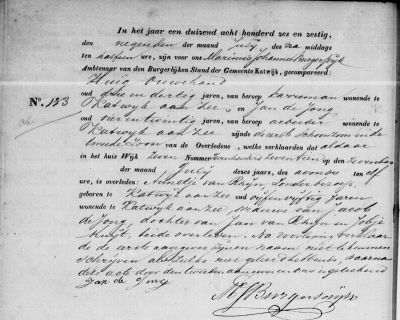 In het jaar een duizend acht honderd zes en zestig,
den negenden der maand July des na middags
ten half een ure, zijn voor ons Marinus Johannes Burgersdijk
Ambtenaar van den Burgerlijken Stand der Gemeente Katwijk, gecompareerd:
Huig Ouwehand
oud drie en dertig jaren, van beroep karreman wonende te
Katwyk aan Zee en Jan de Jong
oud vier en twintig jaren, van beroep arbeider
Katwyk aan Zee zijnde de eerste schoonzoon en de
tweede zoon van de Overledene, welke verklaarden dat aldaar
in het huis Wijk zeven Nommer zeventien op zevenden
der maand July dezes jaars, des avonds ten elf
ure, is overleden: Annetje van Rhyn, zonder beroep,
geboren te Katwyk aan Zee oud vyfenvyftig jaren
wonende te Katwyk aan Zee, vrouw van Jacob
de Jong, dochter van Jan van Rhyn en
Kuyt, beide overleden. Na voorlezing verklaar
de de eerste aangever zynen naam niet te kunnen
schryven als zulks niet geleerd hebbende, waarna
deze acte door den tweeden aangever en ons is geteekend
Jan de Jong
MJBurgersdijk
No. 123